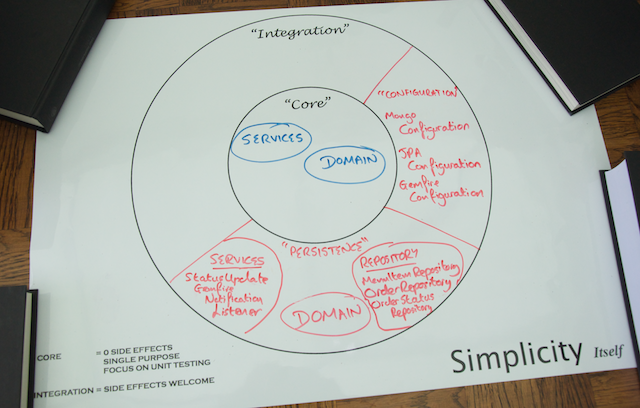 "Integration"
"Core"
SERVICES
DOMAIN
"CONFIGURATION"
Mongo
Configuration
JPA
Configuration
Gemfire
Configuration
"PERSISTENCE"
SERVICES
StatusUpdate
Gemfire
Notification
Listener
DOMAIN
REPOSITORY
MenuItemRepository
OrderRepository
OrderStatus
Repository
CORE = 0 SIDE EFFECTS
SINGLE PURPOSE
FOCUS ON UNIT TESTING
INTEGRATION = SIDE EFFECTS WELCOME
Simplicity Itself